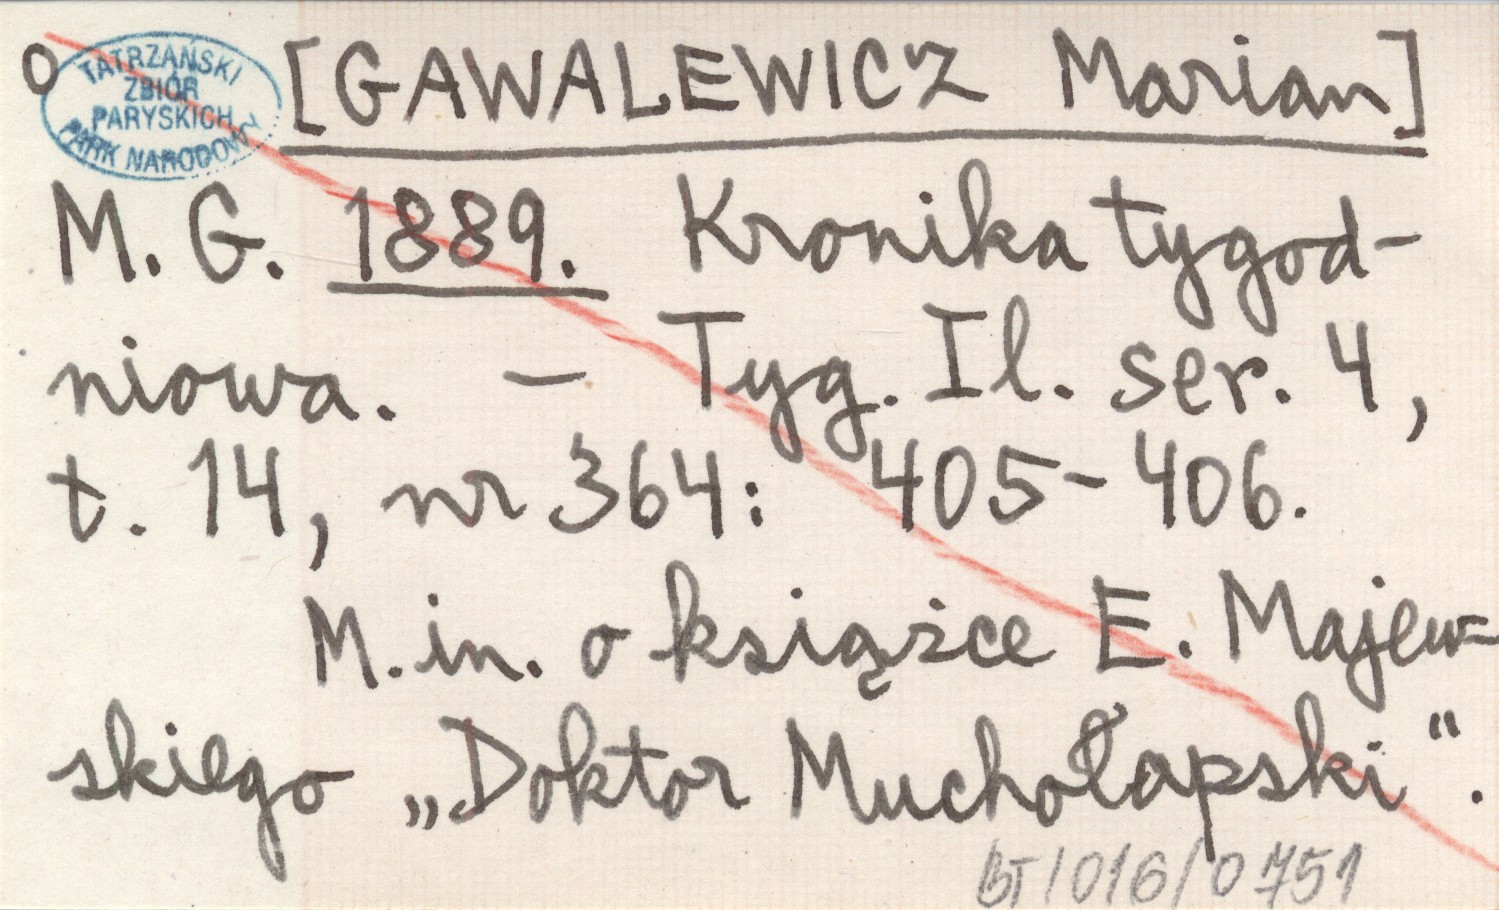 o
TATRZAŃSKI
ZBIÓR
PARYSKICH
PARK NARODOWY
[GAWALEWICZ Marian]
M. G. 1889. Kronika tygod-
niowa. – Tyg. Il. ser. 4,
t. 14, nr 364: 405-406.
M.in. o książce E. Majew=
skiego „Doktor Muchołapski“.
BT/016/0751